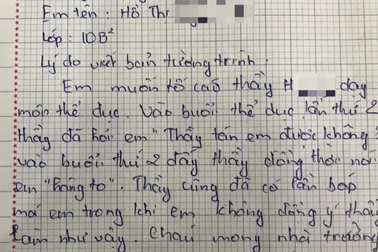 Em tên : Hồ Thr
Lớp : 10B²
Lý do viết bản tường trình :
Em muốn tố cáo thầy H dạy
môn thể dục. Vào buổi thể dục lần thứ 2
thầy đã hỏi em " Thầy tán em được không
vào buổi thứ 2 đấy thầy đồng thời nói
em "hàng to". Thầy cũng đã có lần bóp
mái em trong khi em không đồng ý thầy
làm như vậy. Cháu mong nhà trường